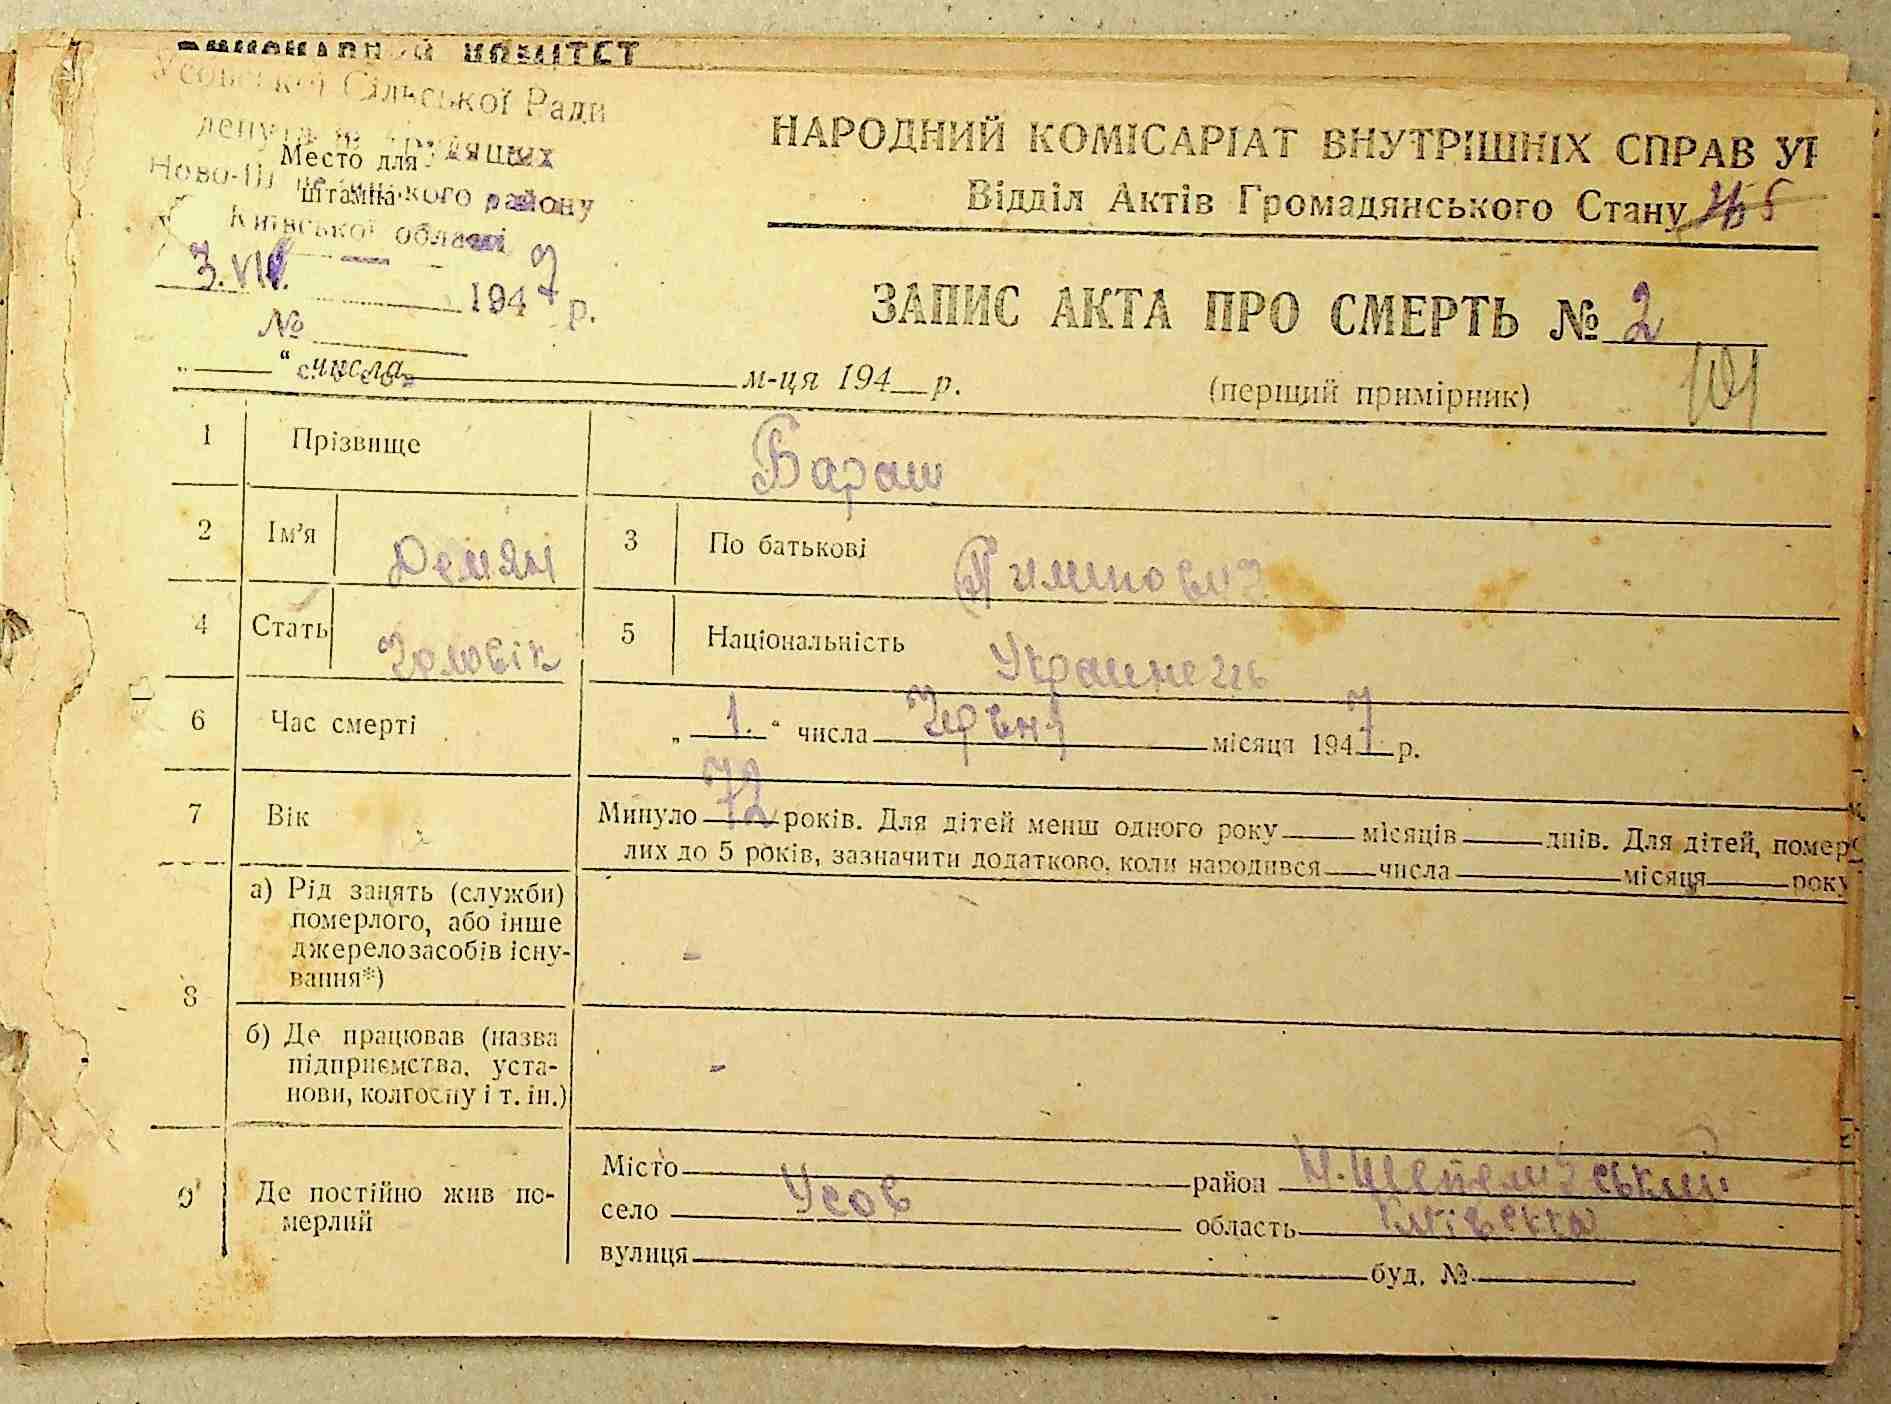 КОМІТЕТ
Сільської Ради
Место для
штампа
району
Київської області
3.VII. 1947 р.
№
НАРОДНИЙ КОМІСАРІАТ ВНУТРІШНІХ СПРАВ
Відділ Актів Громадянського Стану
ЗАПИС АКТА ПРО СМЕРТЬ № 2
„ “ числа м-ця 194 р. (перший примірник) 101
1 Прізвище Бараш
2 Ім’я Демян 3 По батькові
4 Стать Чоловік 5 Національність Украинець
6 Час смерті „ 1. “ числа Червня місяця 1947 р.
7 Вік Минуло 72 років. Для дітей менш одного року місяців днів. Для дітей, помер
лих до 5 років, зазначити додатково, коли народився числа місяця року
8 а) Рід занять (служби)
померлого, або інше
джерело засобів існу-
вання*) -
б) Де працював (назва
підприємства, уста-
нови, колгоспу і т. ін.) -
9 Де постійно жив по-
мерлий
Місто район Н.Шепеличський
село Усов область Київська
вулиця буд. №